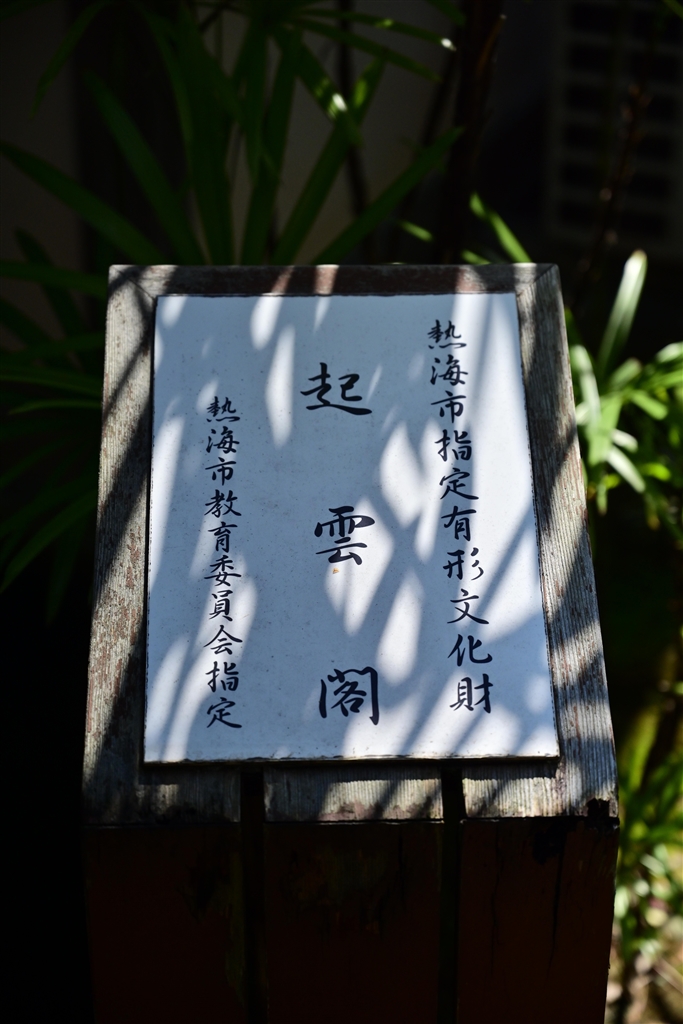 熱海市指定有形文化財
起雲閣
熱海市教育委員会指定